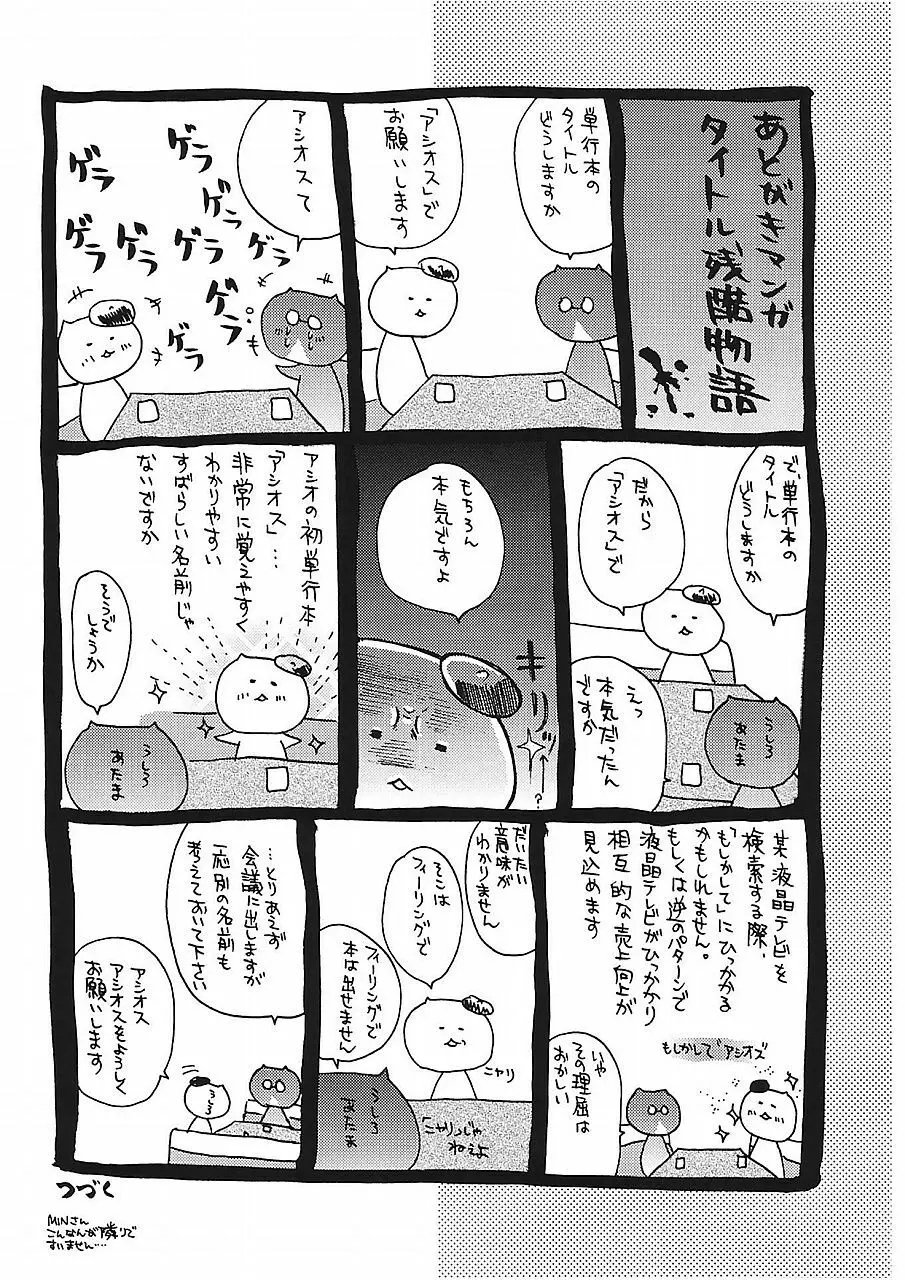 あとがきマンガ
タイトル残酷物語
単行本の
タイトル
どうしますか
「アシオス」で
お願いします
アシオスて
ゲラ
ゲラ
ゲラ
ゲラ
ゲラ
ゲラ
ゲラ
ゲラ
ゲラ
で、単行本の
タイトル
どうしますか
だから
「アシオス」で
えっ
本気だったん
ですか
うしろ
あたま
もちろん
本気ですよ
ギリッ
?
アシオの初単行本
「アシオス」…
非常に覚えやすく
わかりやすい
すばらしい名前じゃ
ないですか
そうで
しょうか
うしろ
あたま
某液晶テレビを
検索する際、
「もしかして」にひっかかる
かもしれません。
もしくは逆のパターンで
液晶テレビがひっかかり
相互的な売上向上が
見込めます
もしかして アシオズ
いや
その理屈は
おかしい
だいたい
意味が
わかりません
そこは
フィーリングで
フィーリングで
本は出せません
ニヤリ
「ニヤリ」じゃ
ねえよ
うしろ
あたま
…とりあえず
会議に出しますが
一応別の名前も
考えておいて下さい
アシオス
アシオスをよろしく
お願いします
うしろ
つづく
MINさん
こんなんが隣りで
すいません…